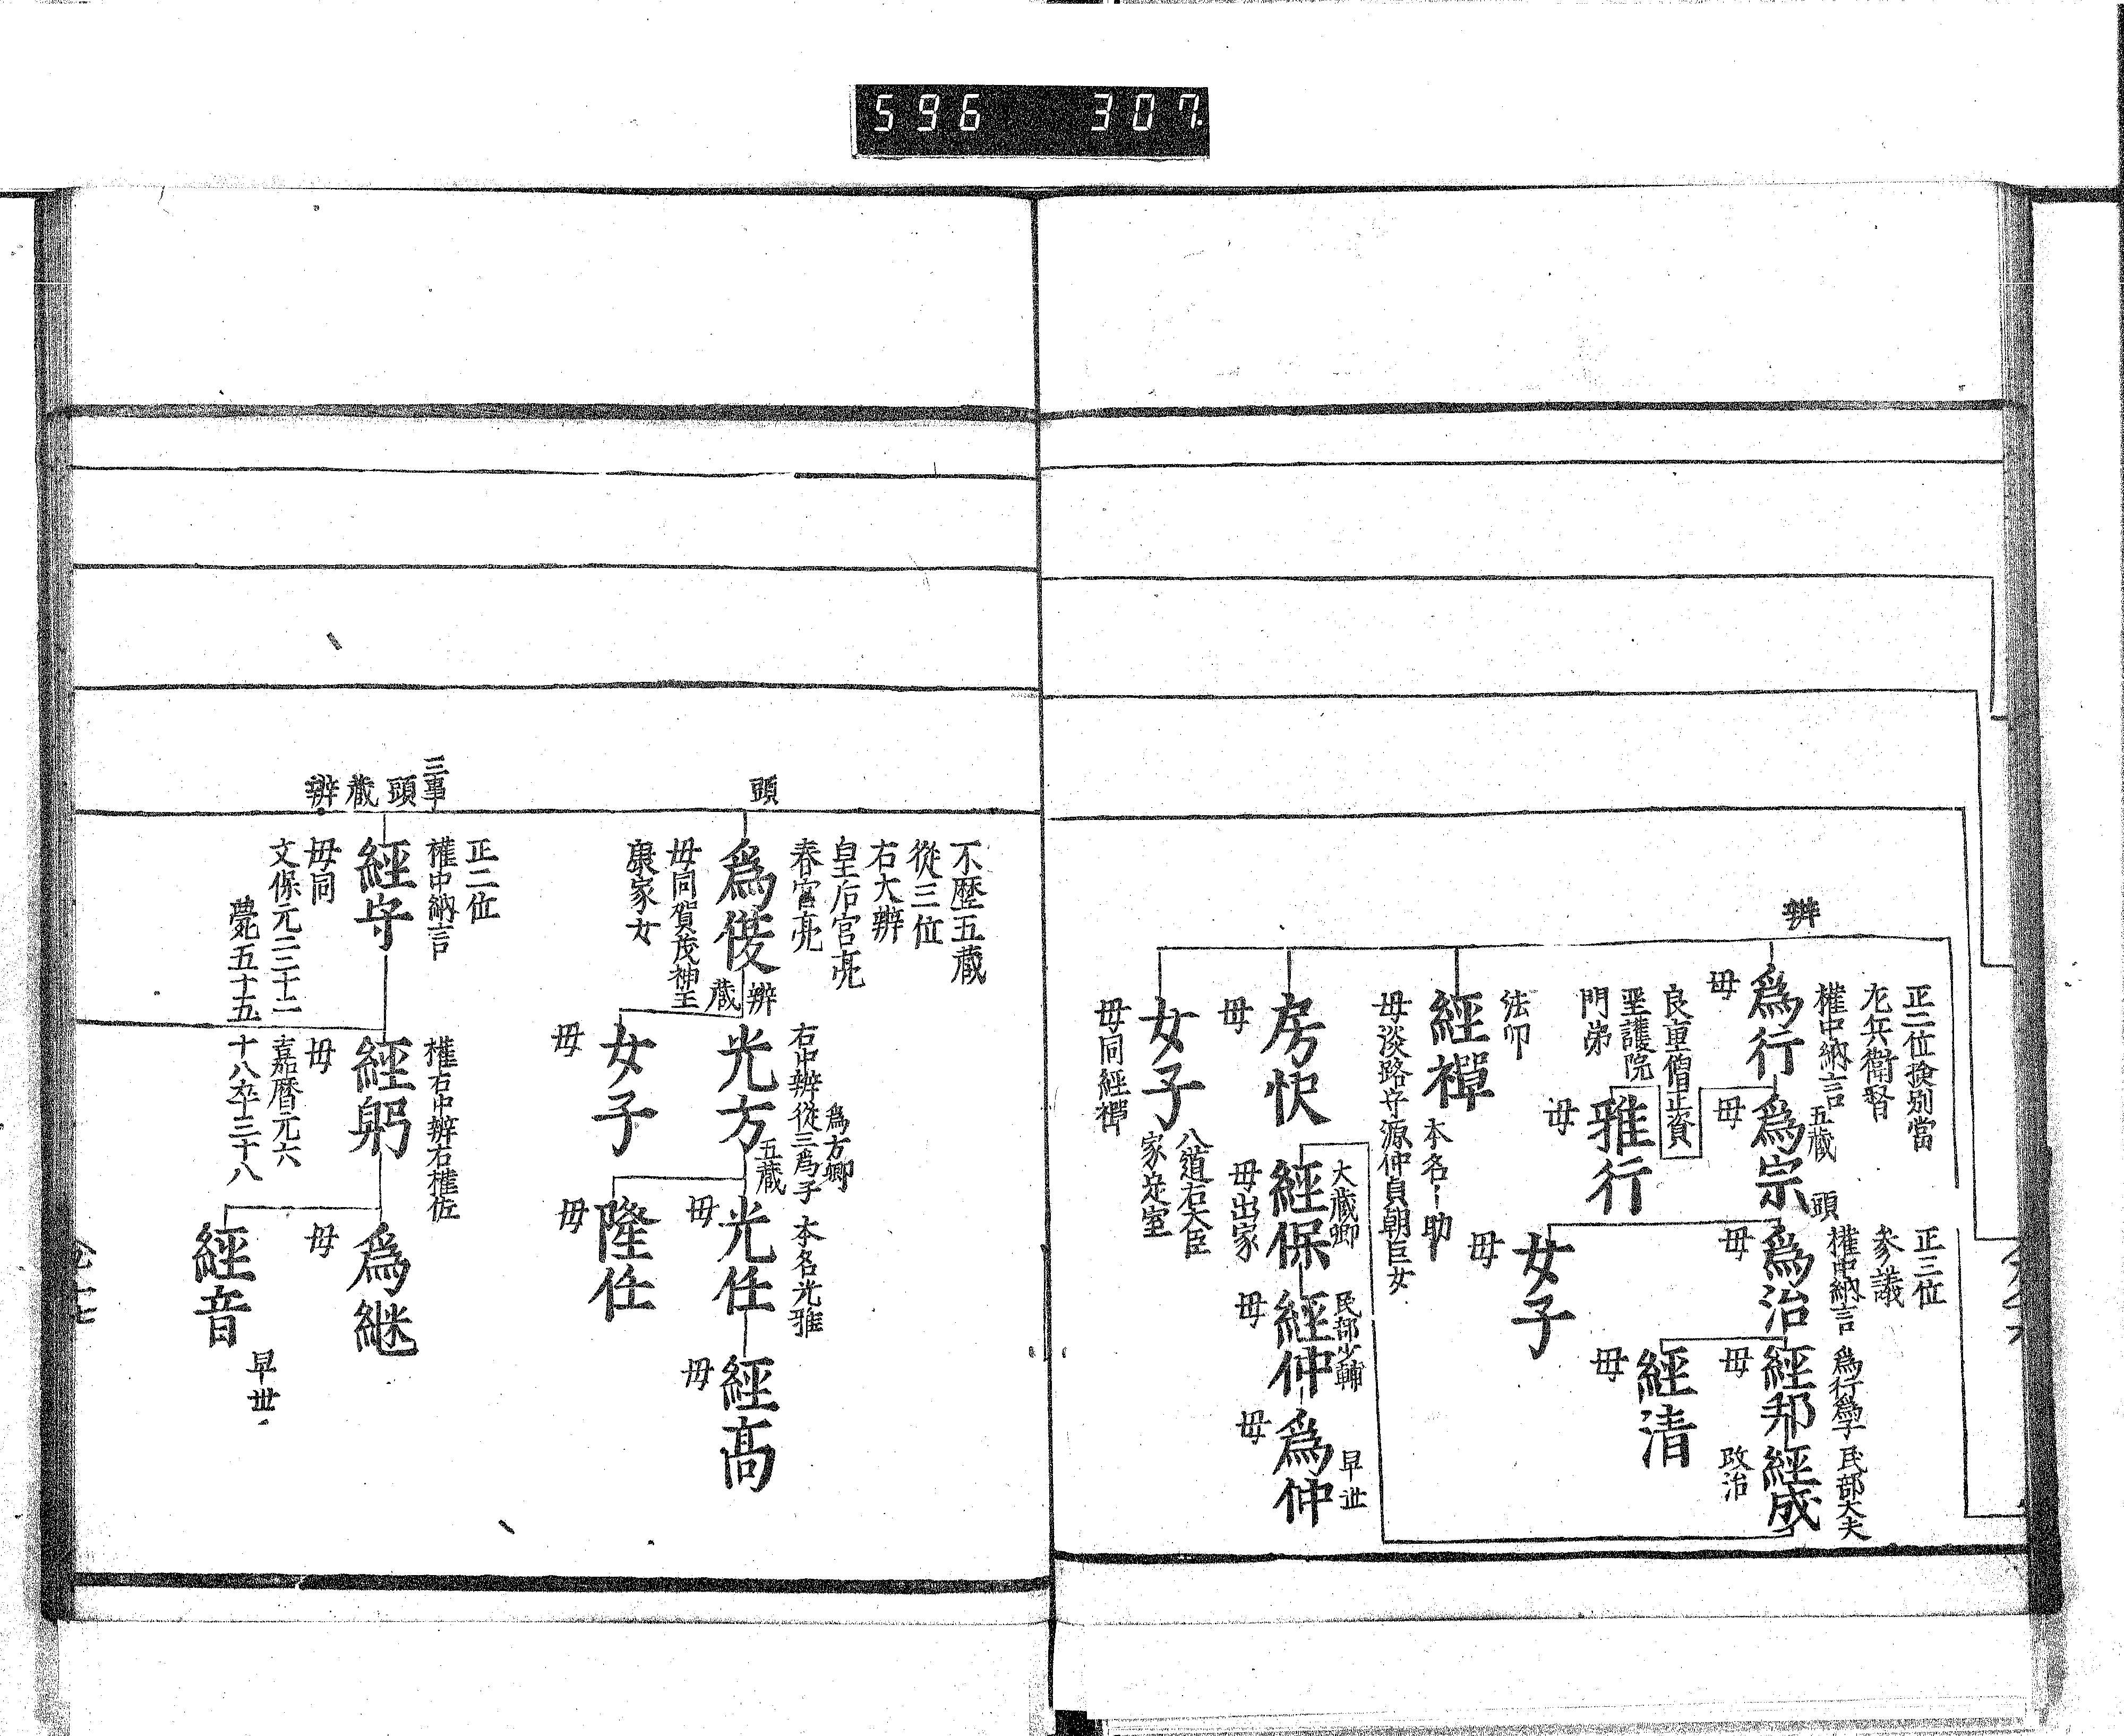 596 307
辨
正二位撿別當
左兵衛督
權中納言
為行
母
五藏
為宗
母
良重僧正資
聖護院
門弟
雅行
母
正三位
參議
權中納言
頭
為治
母
女子
母
為行為子
經邦
母
經清
母
民部大夫
經成
改治
法印
經禪
本名ー助
母淡路守源仲貞朝臣女
房快
母
大藏卿
經保
母出家
民部少輔
經仲
母
早世
為仲
母
女子
八道右大臣
家定室
母同經禪
頭
不歷五藏
從三位
右大辨
皇后宮亮
春宮亮
為俊
母同賀茂神主
康家女
辨
藏
為方卿
右中辨從三為子
光方
女子
母
五藏
本名光雅
光任
母
隆任
母
經高
母
三事
頭
藏
辨
正二位
權中納言
經守
母同
文保元二三十二
薨五十五
權右中辨右權佐
經躬
母
嘉曆元六
十八卒三十八
為継
母
經音
早世